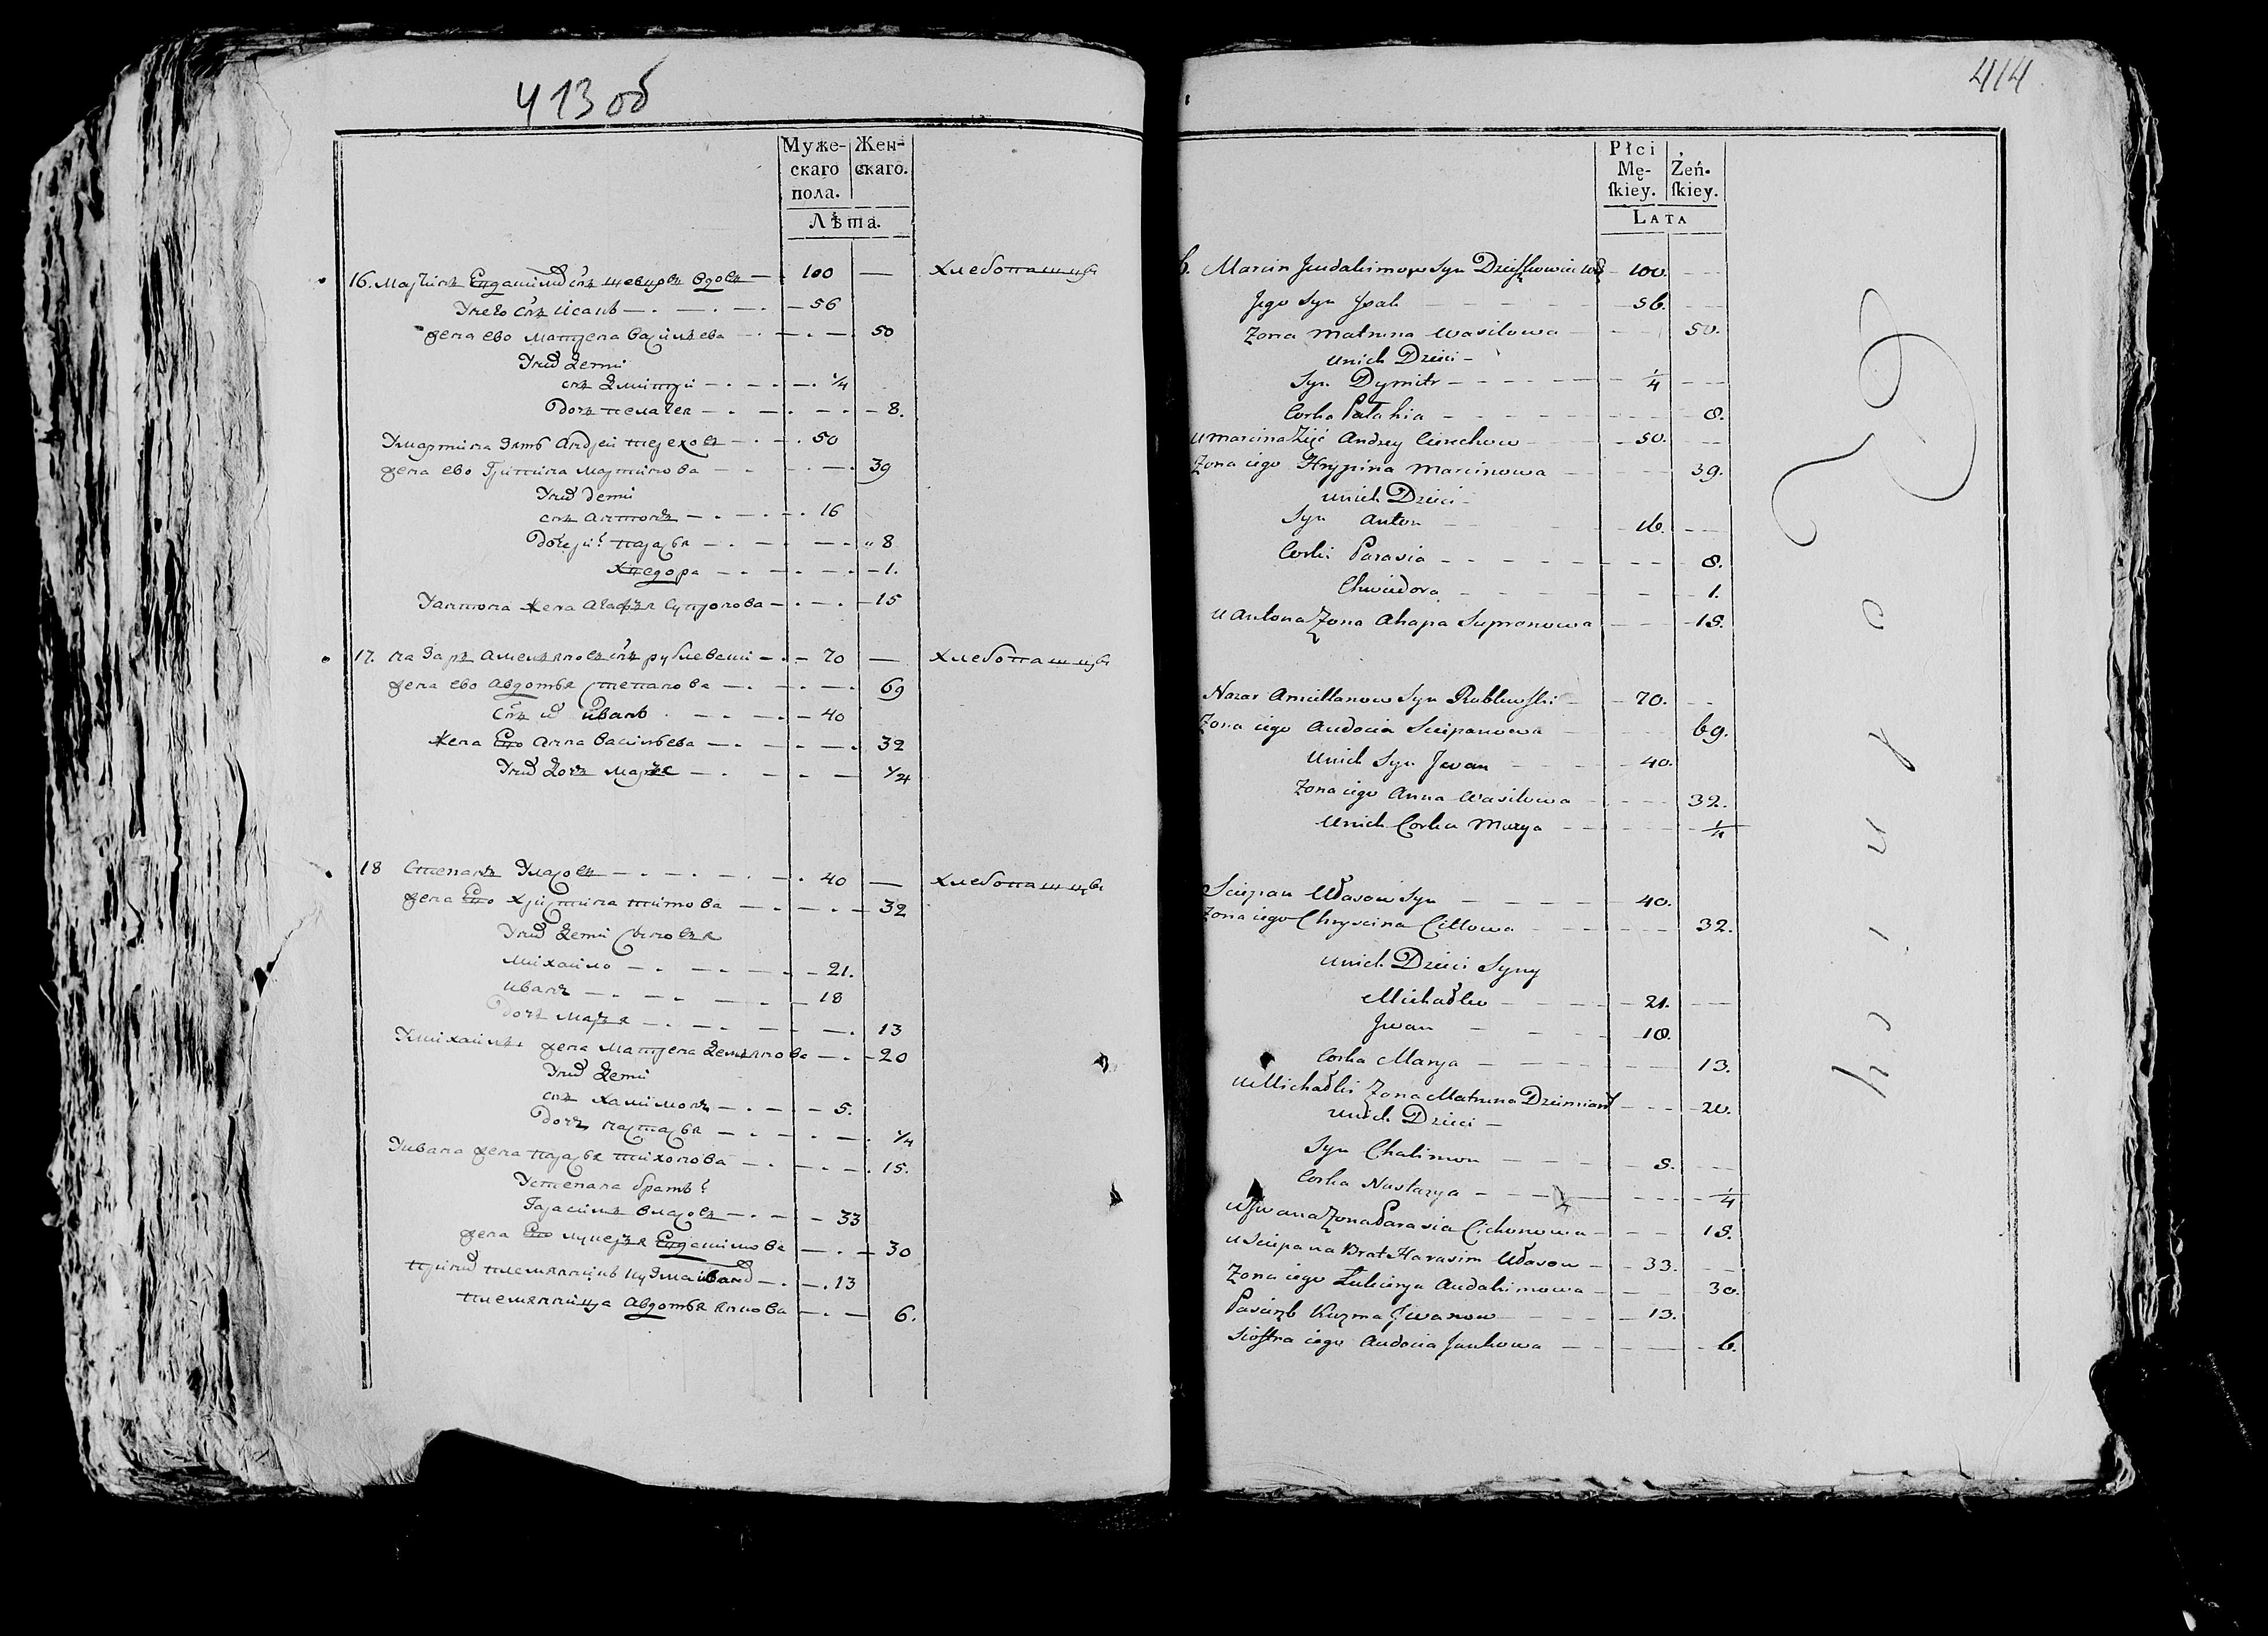 413 об
Муже-
скаго
пола.
Жен-
скаго.
Лѣта.
16. Мартинъ снъ вдовъ 100 — хлебопашцы
У него снъ Исакъ 56
жена ево Матрена Васильева 50
У них дети
снъ Дмитри 1/4
дочь Пелагея 8.
У Мартина зять Андреи Терехов 50
жена ево Грипина Мартинова 39
У них дети
снъ Антонъ 16
дочери Парасья 8
Хведора 1.
У Антона жена Агафья Супронова 15
17. Назаръ Амельяновъ снъ Рублевски 70 — хлебопашцы
жена ево Авдотья Степанова 69
снъ их Иванъ 40
жена Ево Анна Васильева 32
У них дочь Марья 1/4
18 Степанъ Уласовъ 40 — хлебопашцы
жена Ево Христина Титова 32
У них дети сыновья
Михайло 21.
Иванъ 18
дочь Марья 13
У Михаилы жена Матрена Демьянова 20
У них дети
снъ Халимонъ 5.
дочь Настасья 1/4
У Ивана жена Парасья Тихонова 15.
У Степана братъ
Гарасимъ Власовъ 33
жена Ево Лукерья Евдакимова 30
При них племянникъ Кузма Иванов 13
племянница Авдотья Янкова 6.
414
Płci
Mę-
ſkiey.
Żeń-
ſkiey.
LATA
Marcin Jeudakimow Syn 100.
Jego Syn Jsak 56.
Zona Matruna Wasilowa 50.
u nich Dzieci
Syn Dymitr 1/4
Corka Palahia 8.
u Marcina Zięć Andrey Cierechow 50.
Zona iego Hrypina Marcinowa 39.
u nich Dzieci
Syn Anton 16.
Corki Parasia 8.
Chwiedora 1.
u Antona Zona Ahapa Supronowa 15.
Nazar Amiellanow Syn Rublewſki 70.
Zona iego Audocia Sciepanowa 69.
u nich Syn Jwan 40.
Zona iego Anna Wasilowa 32.
u nich Corka Marya 1/4
Sciepan Ułasow Syn 40.
Zona iego Chryscina Cittowa 32.
u nich Dzieci Syny
Michałko 21.
Jwan 18.
Corka Marya 13.
u Michałki Zona Matruna 20.
u nich Dzieci
Syn Chalimon 5.
Corka Nastazya 1/4
u Jwana Zona Parasia Cichonowa 15.
u Sciepana Brat Harasim Ułasow 33.
Zona iego Łukierya Audakimowa 30.
Pasierzb Kuzma Jwanow 13.
Sioſtra iego Audocia Jankowa 6.